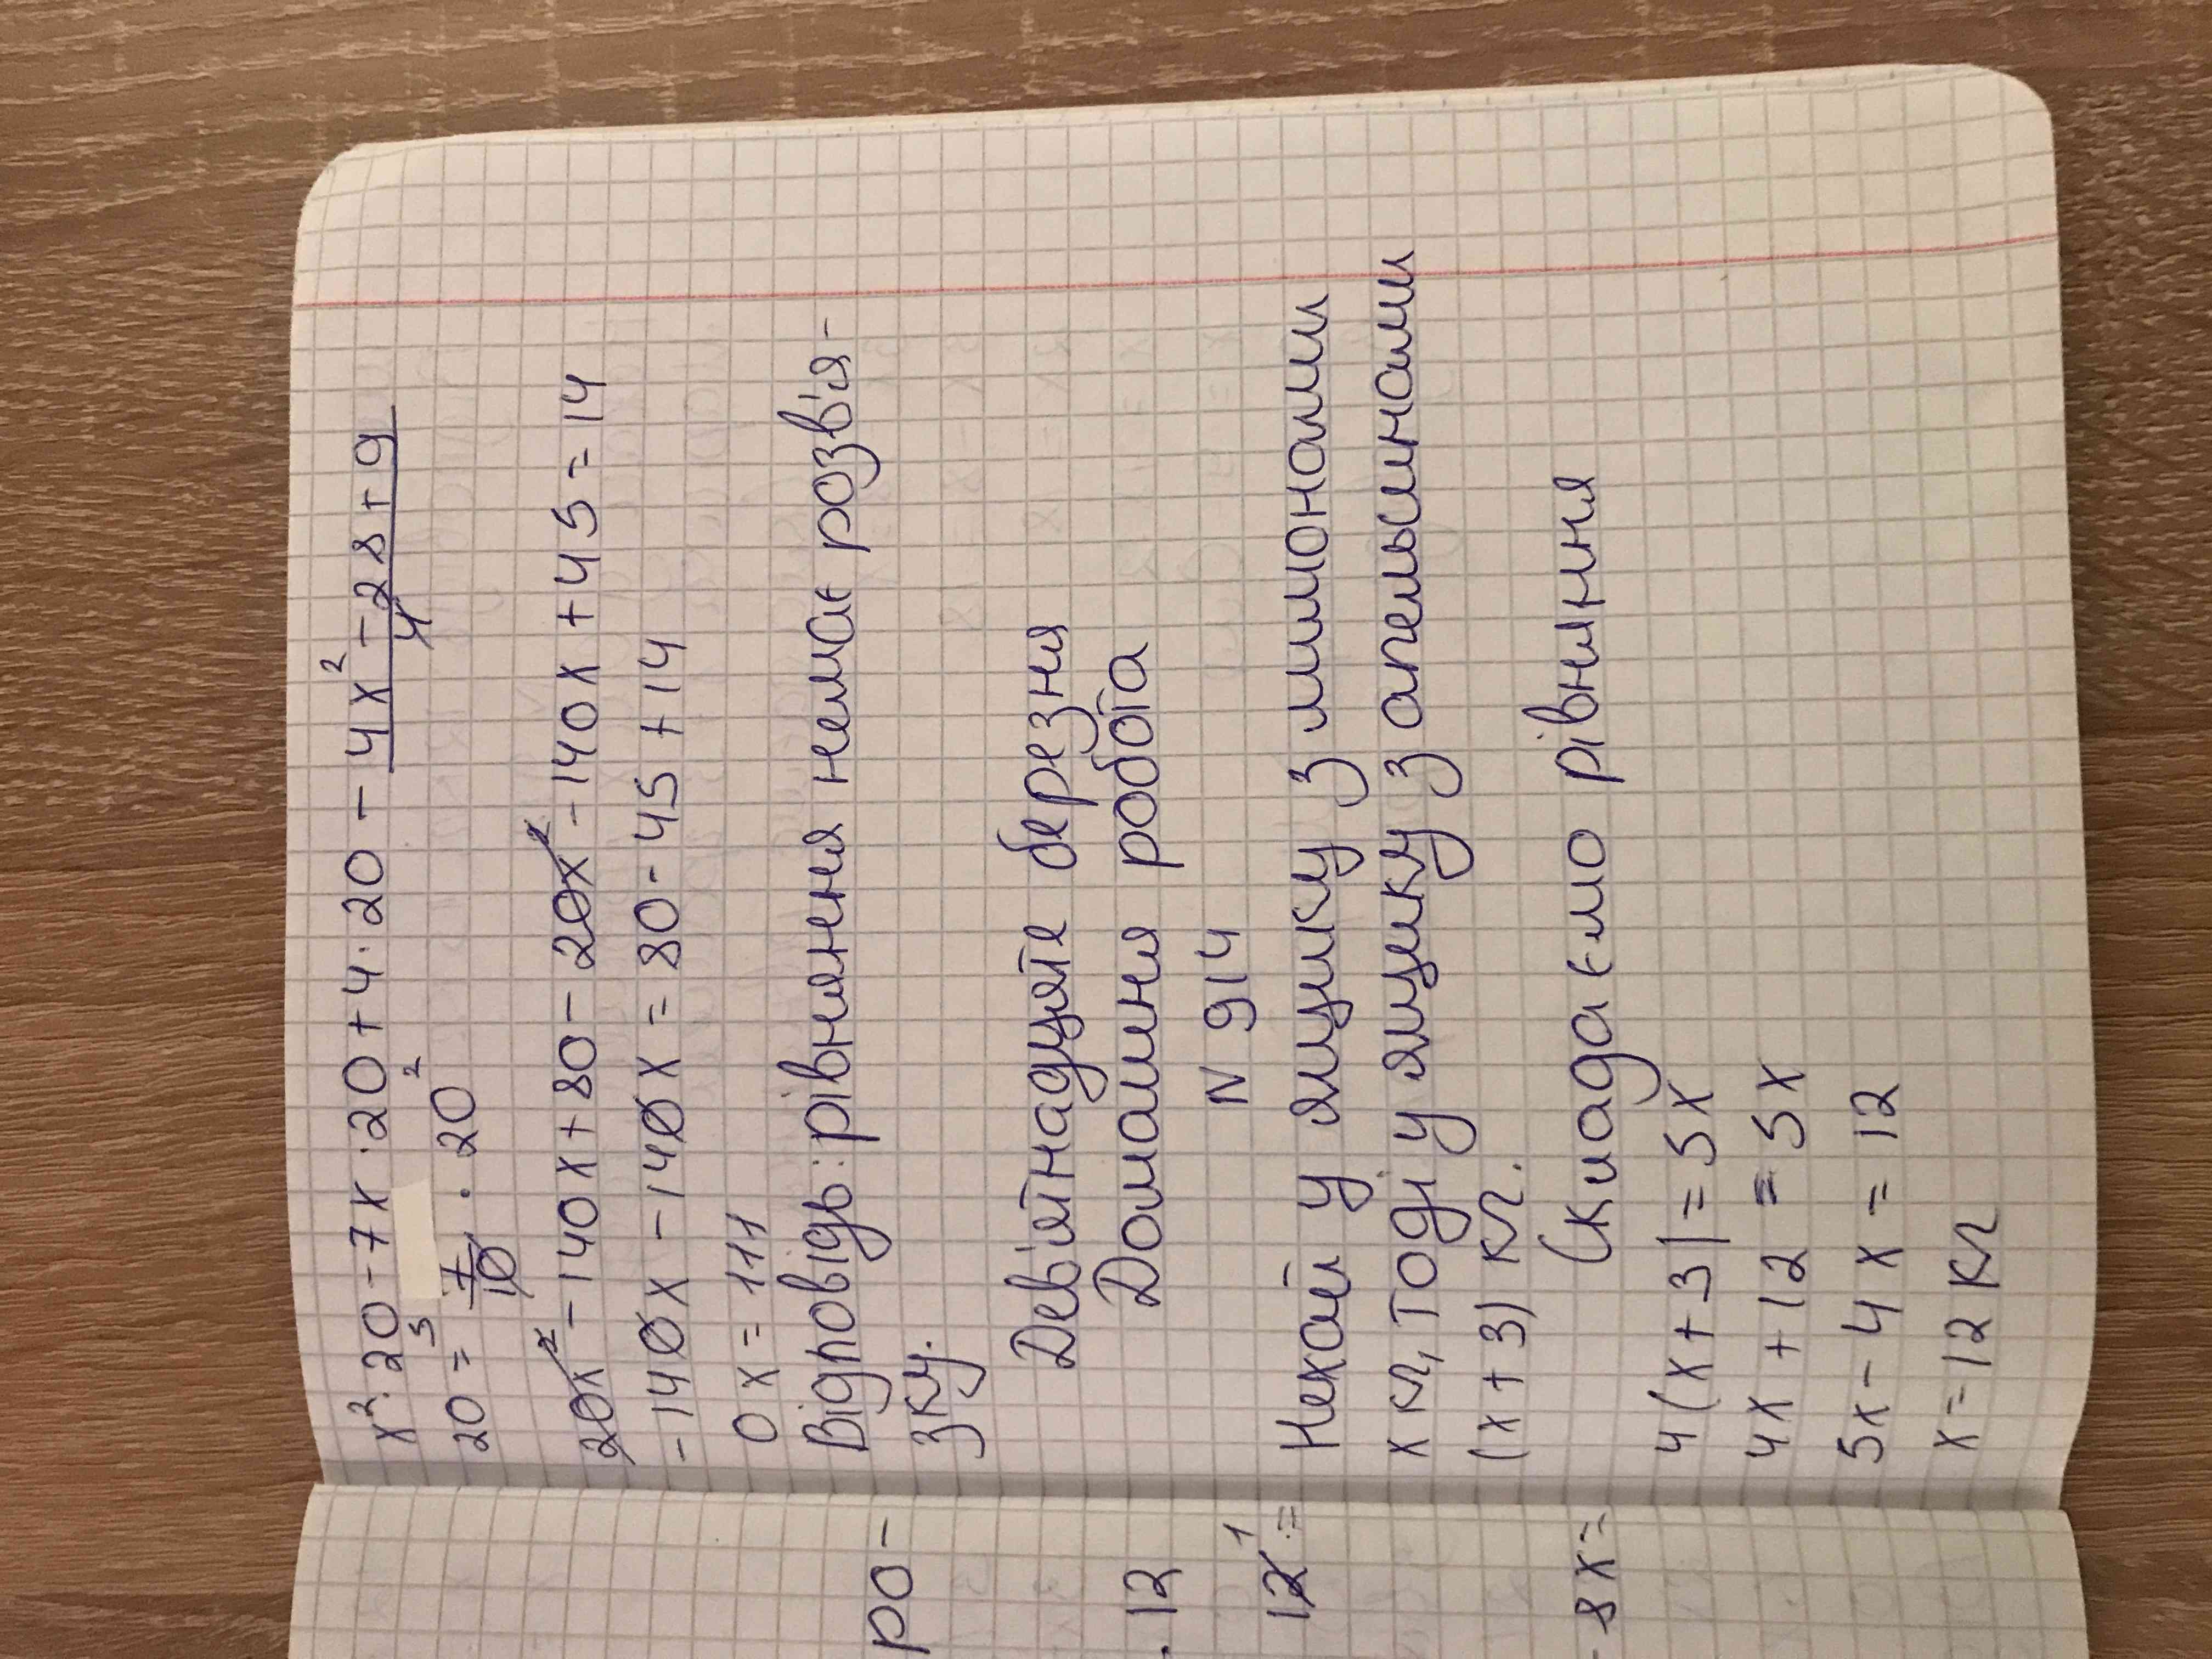 x²·20-7x·20+4·20- 4x²-28+9
4⁵
20= 7/10 · 20²
20x²-140x+80-20x²-140x+45=14
-140x-140x=80-45+14
0x=111
Відповідь: рівняння немає розв'я-
зку.
Дев'ятнадцяте березня
Домашня робота
N 914
Нехай у ящику з лимонами
x кг, тоді у ящику з апельсинами
(x+3) кг.
Складаємо рівняння
4(x+3)=5x
4x+12=5x
5x-4x=12
x=12 кг
ро-
. 12
12¹ =
- 8x=